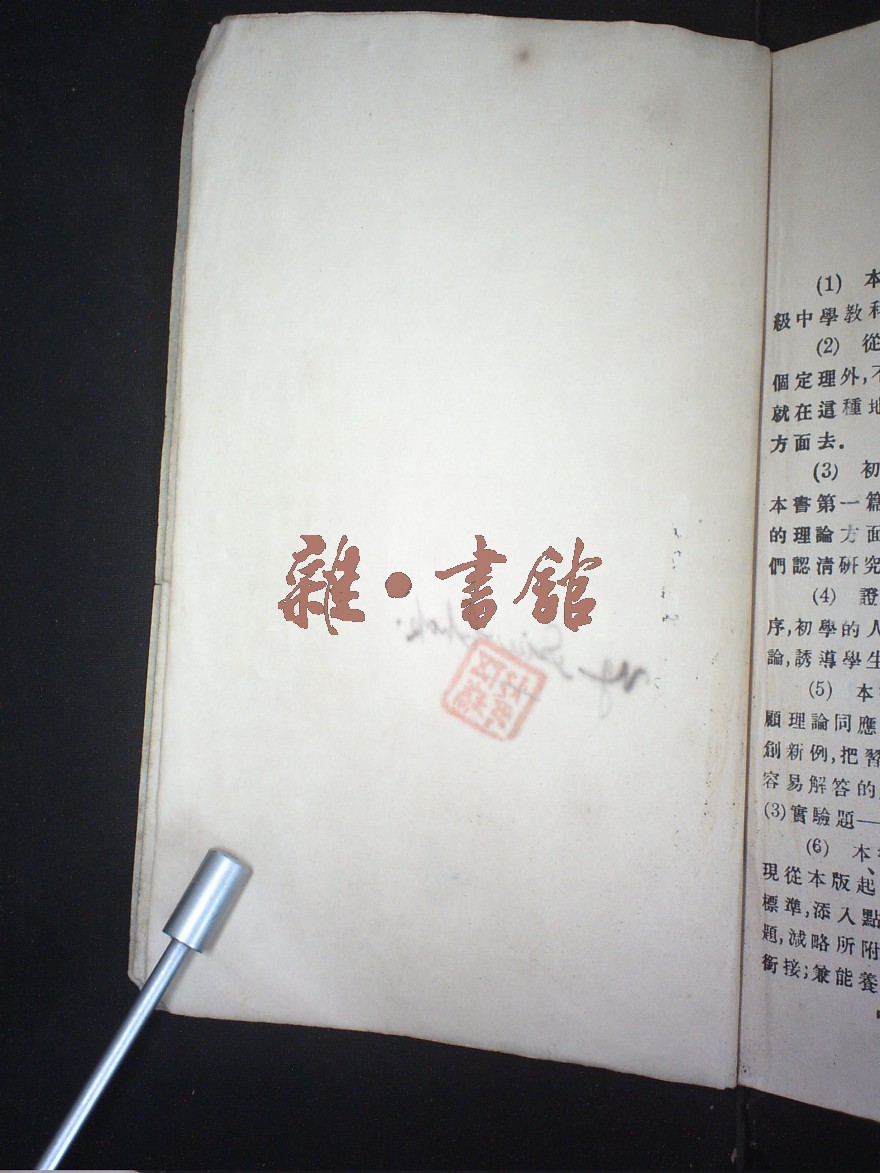 雜·書館
(1) 本
級中學教科
(2) 從
個定理外,不
就在這種地
方面去.
(3) 初
本書第一篇
的理論方面
們認清研究
(4) 證
序,初學的人
論,誘導學生
(5) 本
顧理論同應
創新例,把習
容易解答的
(3)實驗題—
(6) 本
現從本版起
標準,添入點
題,減略所附
銜接;兼能養